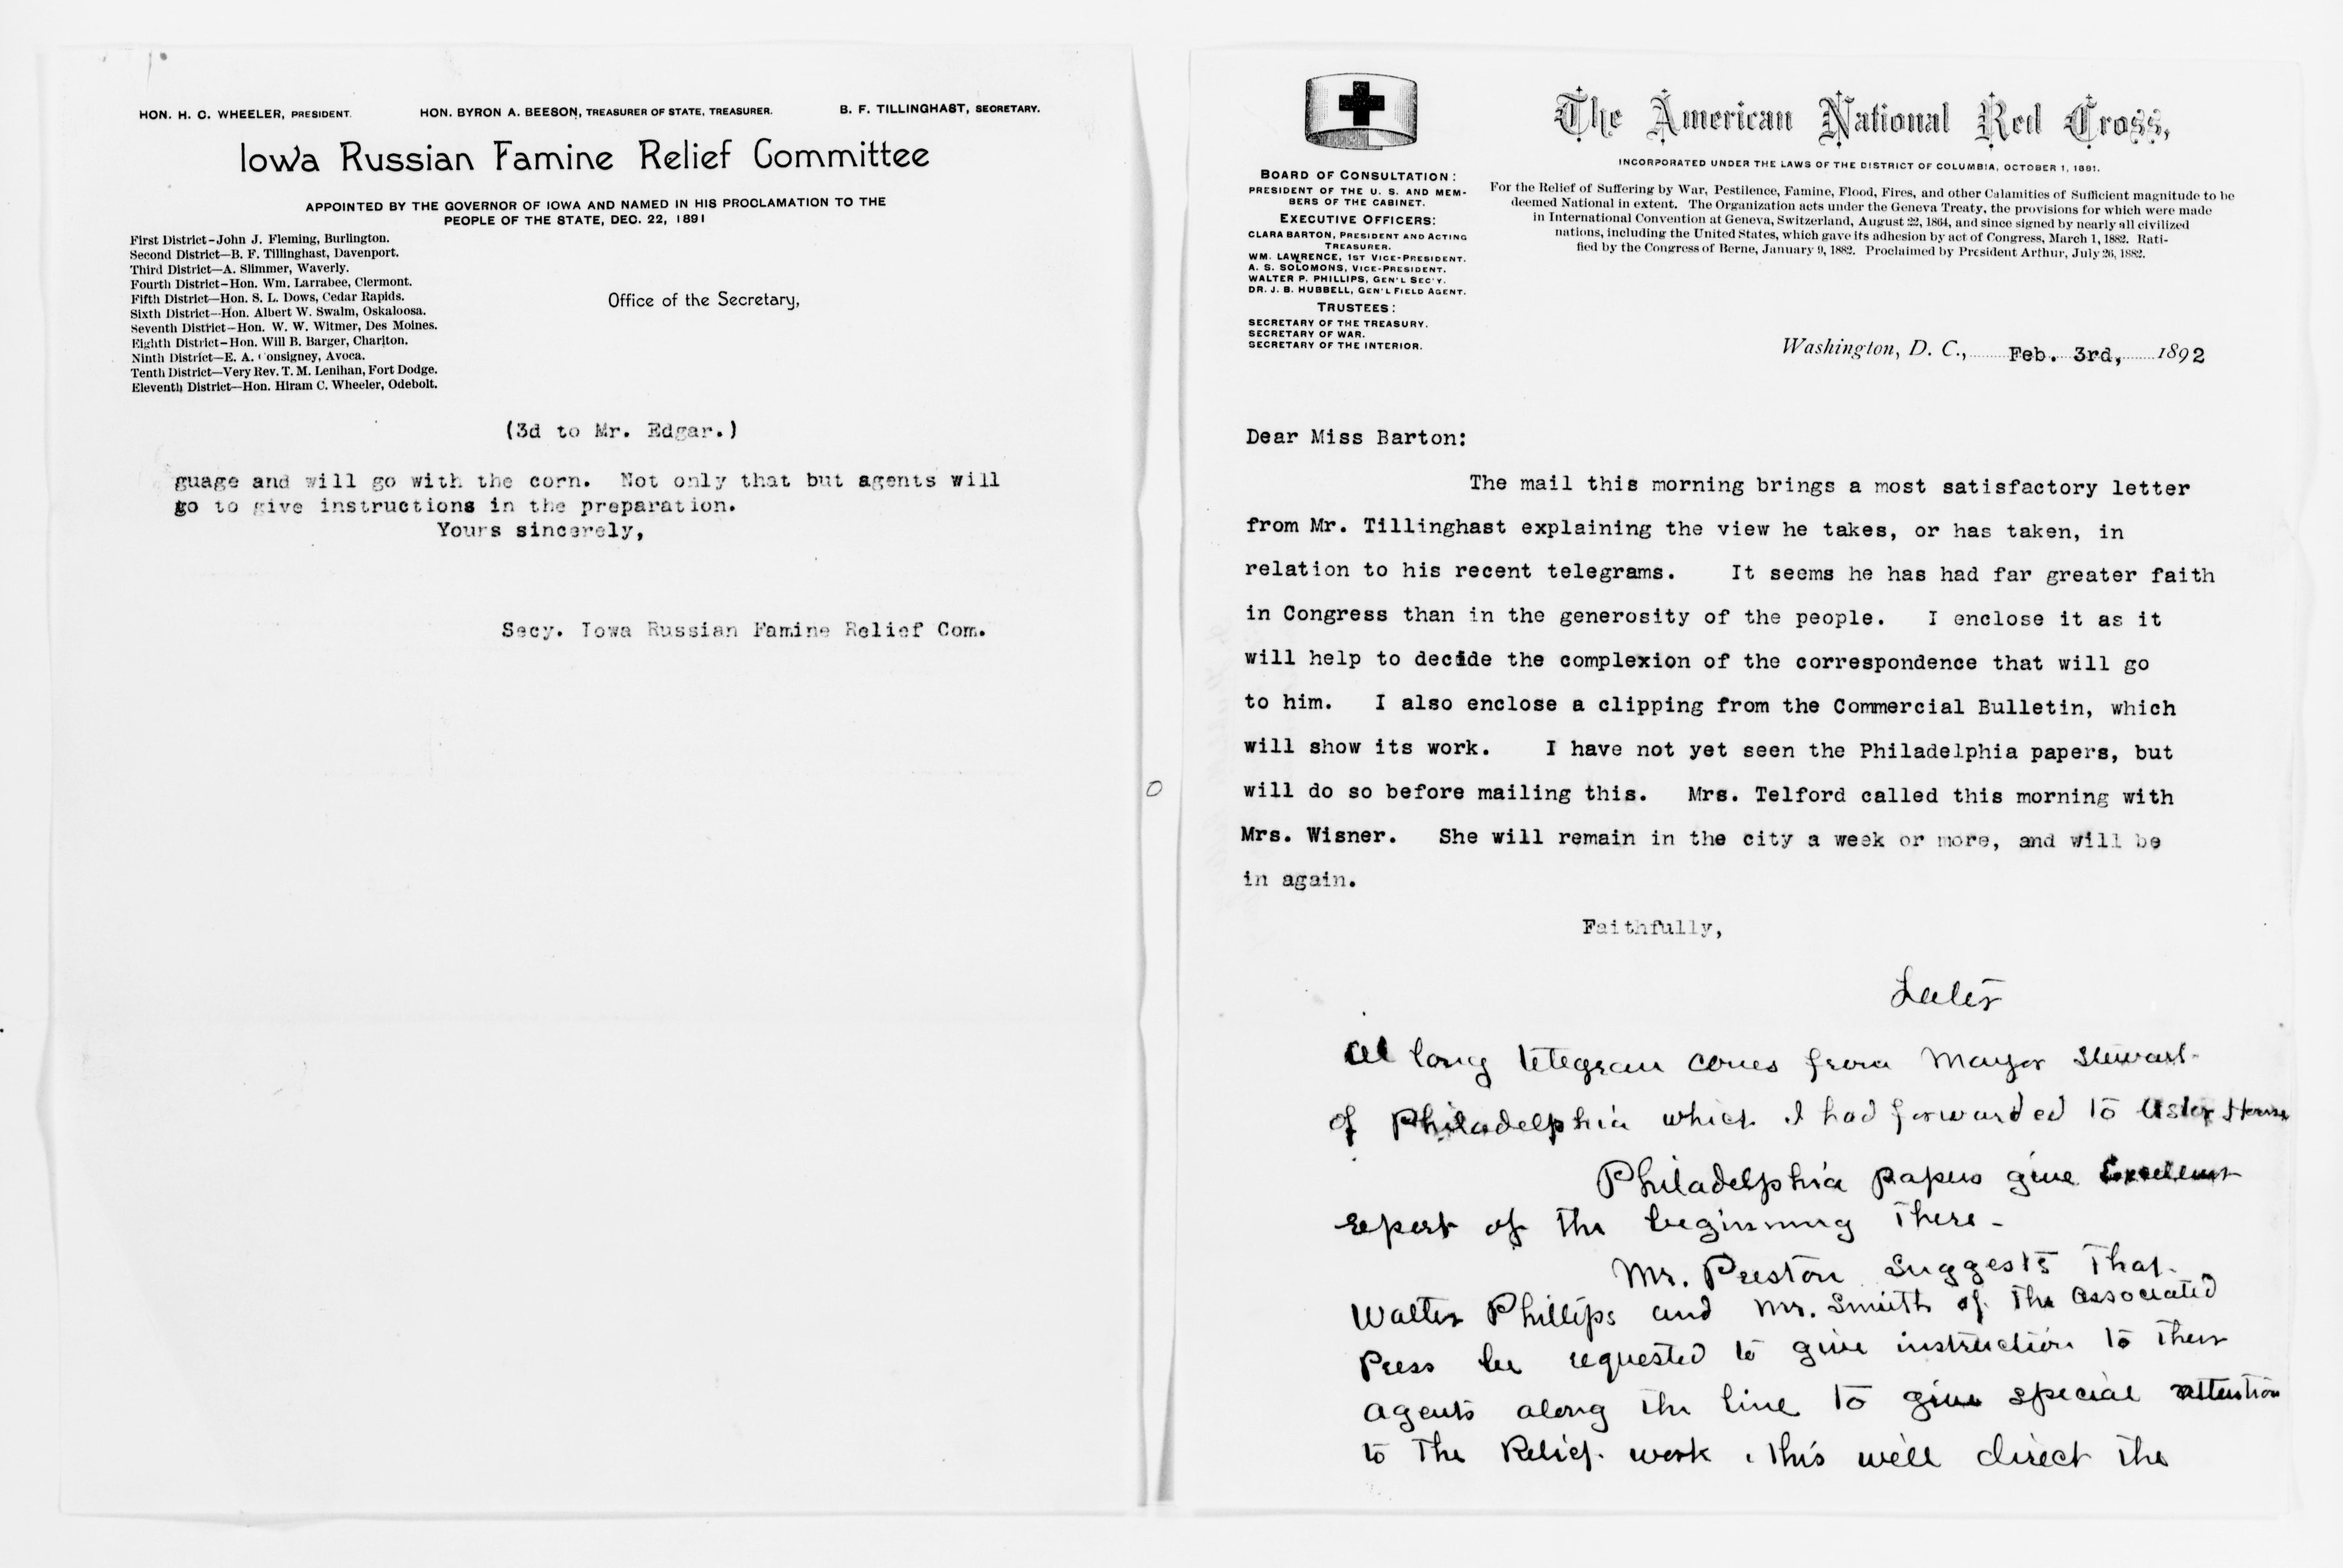 HON. H. C. WHEELER, PRESIDENT.
HON. BYRON A. BEESON, TREASURER OF STATE, TREASURER.
B. F. TILLINGHAST, SECRETARY.
Iowa Russian Famine Relief Committee
APPOINTED BY THE GOVERNOR OF IOWA AND NAMED IN HIS PROCLAMATION TO THE
PEOPLE OF THE STATE, DEC. 22, 1891
First District-John J. Fleming, Burlington.
Second District—B. F. Tillinghast, Davenport.
Third District—A. Slimmer, Waverly.
Fourth District—Hon. Wm. Larrabee, Clermont.
Fifth District—Hon. S. L. Dows, Cedar Rapids.
Sixth District—Hon. Albert W. Swalm, Oskaloosa.
Seventh District—Hon. W. W. Witmer, Des Moines.
Eighth District—Hon. Will B. Barger, Chariton.
Ninth District—E. A. Consigney, Avoca.
Tenth District—Very Rev. T. M. Lenihan, Fort Dodge.
Eleventh District—Hon. Hiram C. Wheeler, Odebolt.
Office of the Secretary,
(3d to Mr. Edgar.)
guage and will go with the corn. Not only that but agents will
go to give instructions in the preparation.
Yours sincerely,
Secy. Iowa Russian Famine Relief Com.
The American National Red Cross,
INCORPORATED UNDER THE LAWS OF THE DISTRICT OF COLUMBIA, OCTOBER 1, 1881.
For the Relief of Suffering by War, Pestilence, Famine, Flood, Fires, and other Calamities of Sufficient magnitude to be
deemed National in extent. The Organization acts under the Geneva Treaty, the provisions for which were made
in International Convention at Geneva, Switzerland, August 22, 1864, and since signed by nearly all civilized
nations, including the United States, which gave its adhesion by act of Congress, March 1, 1882. Rati-
fied by the Congress of Berne, January 9, 1882. Proclaimed by President Arthur, July 26, 1882.
BOARD OF CONSULTATION:
PRESIDENT OF THE U. S. AND MEM-
BERS OF THE CABINET.
EXECUTIVE OFFICERS:
CLARA BARTON, PRESIDENT AND ACTING
TREASURER.
WM. LAWRENCE, 1ST VICE-PRESIDENT.
A. S. SOLOMONS, VICE-PRESIDENT.
WALTER P. PHILLIPS, GEN'L SEC'Y.
DR. J. B. HUBBELL, GEN'L FIELD AGENT.
TRUSTEES:
SECRETARY OF THE TREASURY.
SECRETARY OF WAR.
SECRETARY OF THE INTERIOR.
Washington, D. C., Feb. 3rd, 1892
Dear Miss Barton:
The mail this morning brings a most satisfactory letter
from Mr. Tillinghast explaining the view he takes, or has taken, in
relation to his recent telegrams. It seems he has had far greater faith
in Congress than in the generosity of the people. I enclose it as it
will help to decide the complexion of the correspondence that will go
to him. I also enclose a clipping from the Commercial Bulletin, which
will show its work. I have not yet seen the Philadelphia papers, but
will do so before mailing this. Mrs. Telford called this morning with
Mrs. Wisner. She will remain in the city a week or more, and will be
in again.
Faithfully,
Later
A long telegram comes from Mayor Stewart
of Philadelphia which I had forwarded to Astor House
Philadelphia papers give Excellent
report of the beginning there -
Mr. Preston suggests that
Walter Phillips and Mr. Smith of the Associated
Press be requested to give instruction to their
agents along the line to give special attention
to the Relief work, this will direct the